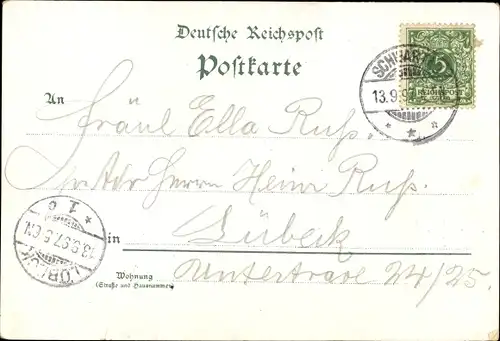 Deutsche Reichspost
Postkarte
SCHWART
13.9.9
5
REICHSPOST
An
Fräul Ella Ruß.
pr Adr Herrn Heinr Ruß.
in Lübeck
Untertrave 24/25.
Wohnung
(Straße und Hausnummer)
LÜBECK
13.9.97.5-6N.
* 1 c